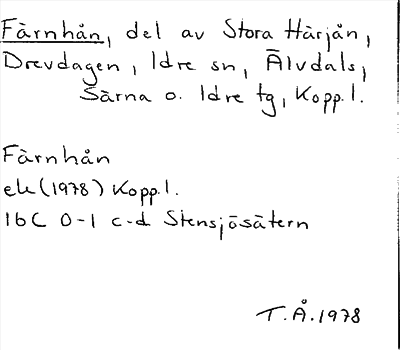 Färnhån, del av Stora Härjån,
Drevdagen, Idre sn, Älvdals,
Särna o. Idre tg, Kopp.l.
Färnhån
ek (1978) Kopp.l.
16C 0-1 c-d Stensjösätern
T.Å.1978